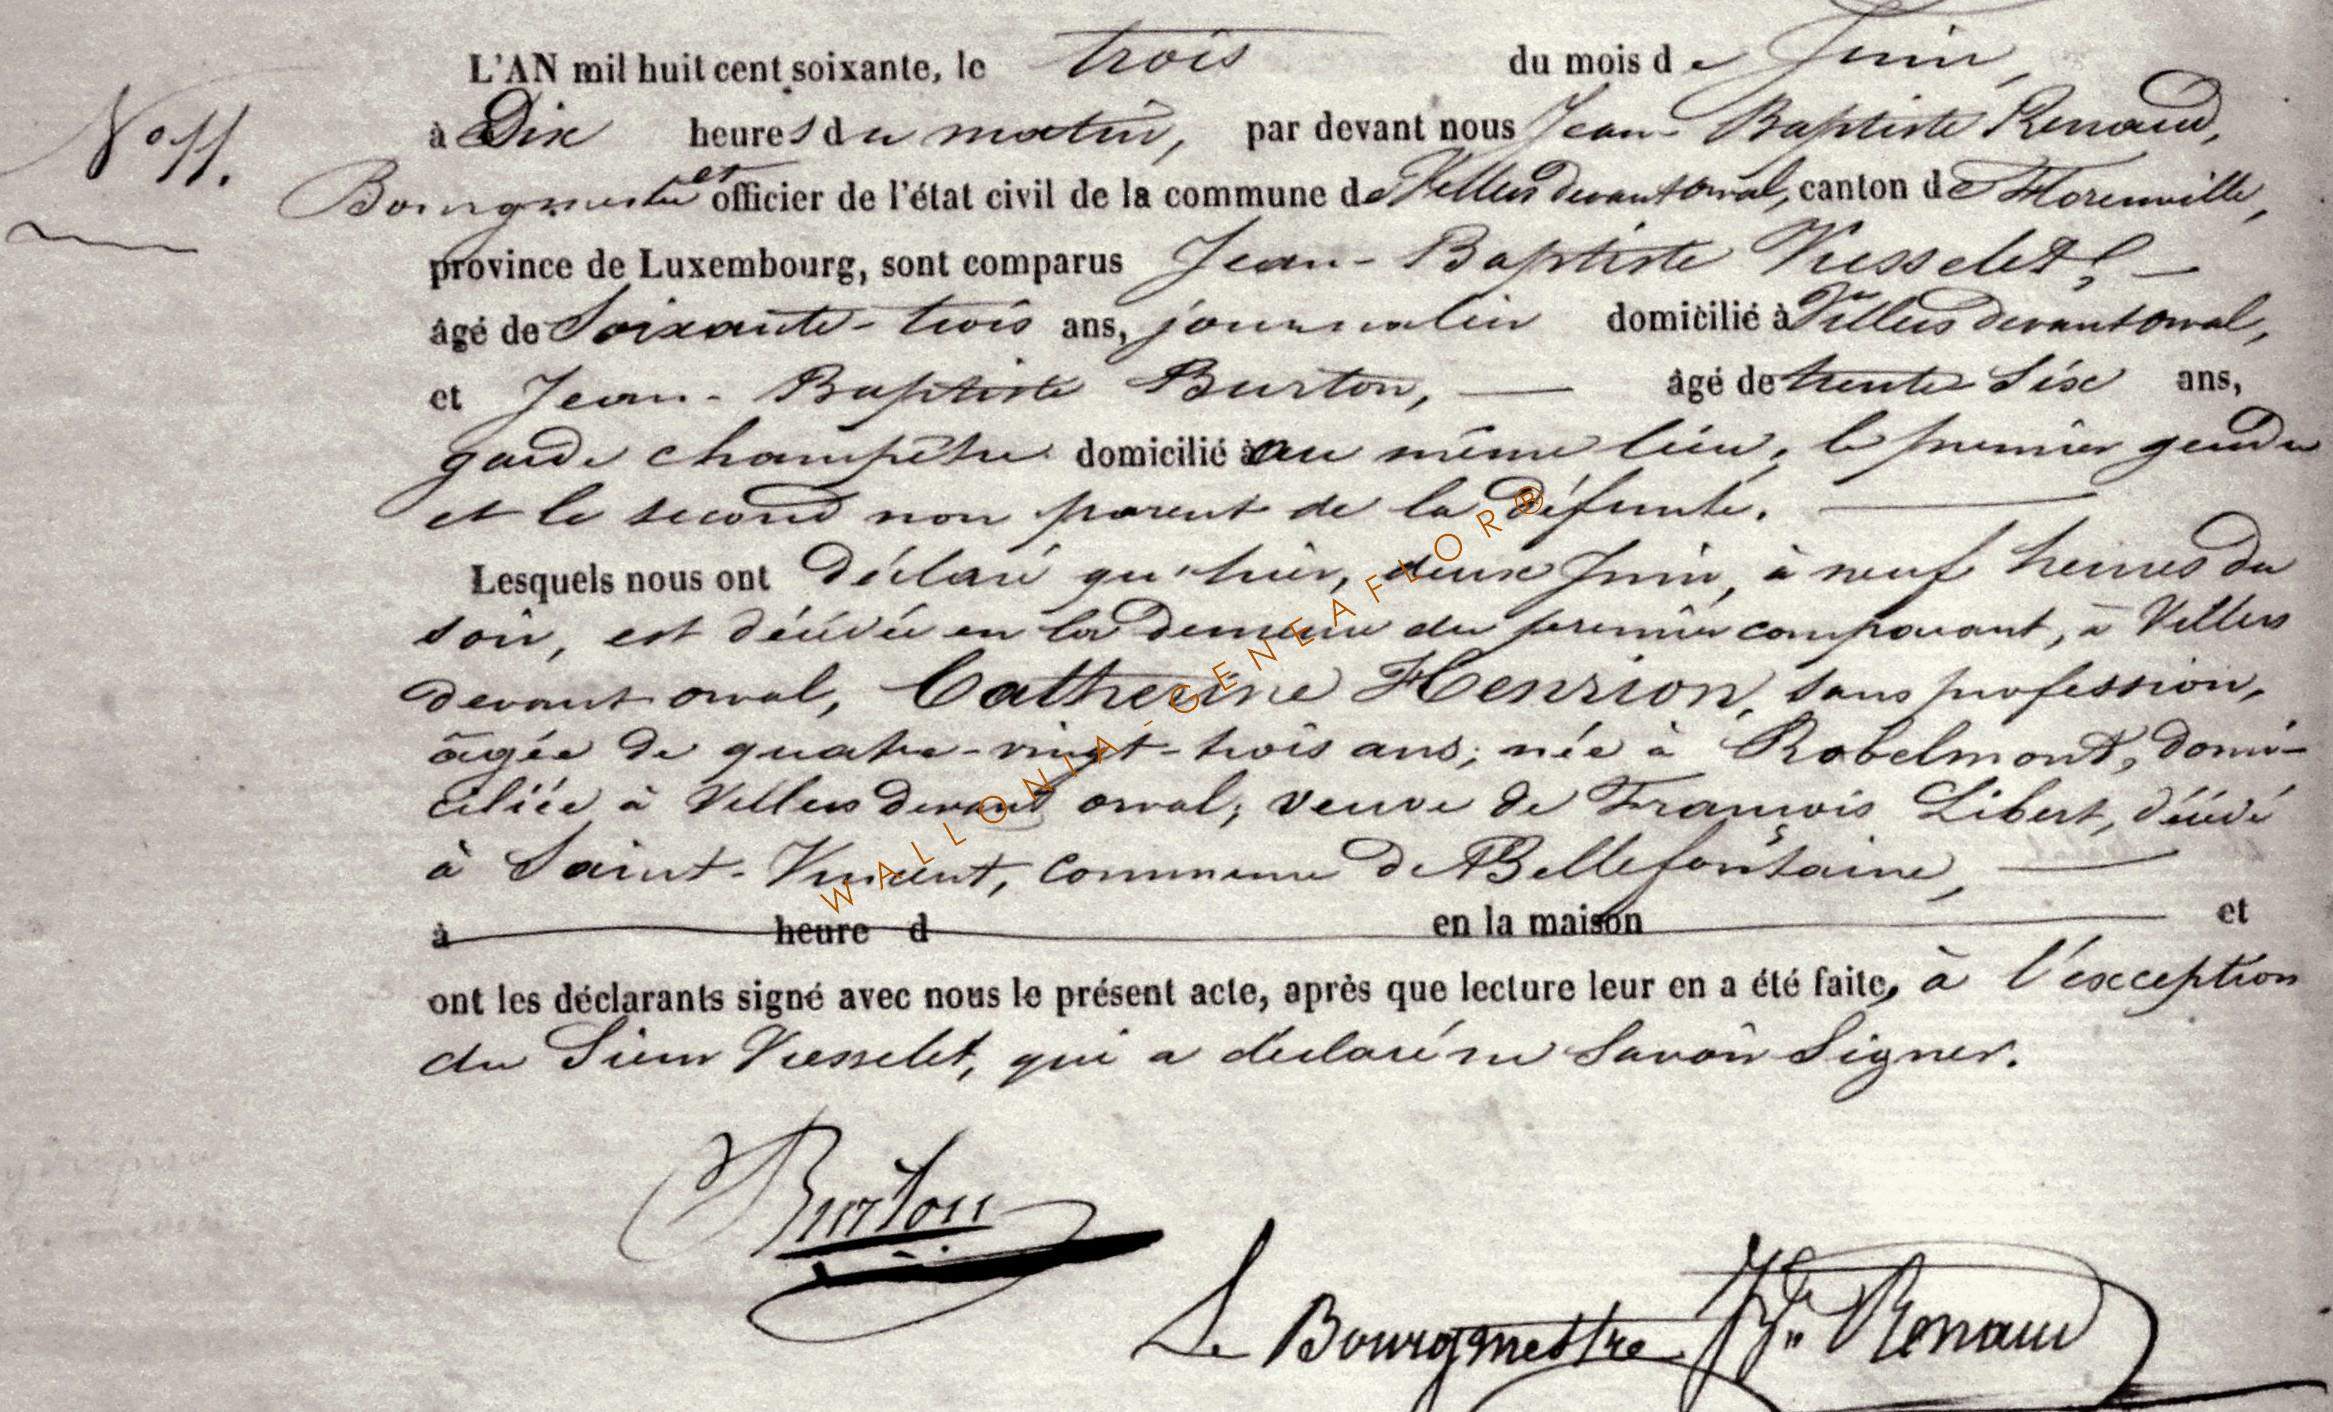 L'AN mil huit cent soixante, le trois du mois de Juin,
N° 11.
à Dix heures du matin, par devant nous Jean-Baptiste Renaud,
Bourgmestre et officier de l'état civil de la commune de Villers devant orval, canton de Florenville,
province de Luxembourg, sont comparus Jean-Baptiste Viesselet,
âgé de Soixante-trois ans, journalier domicilié à Villers devant orval,
et Jean-Baptiste Burton, âgé de trente Six ans,
garde champêtre domicilié au même lieu, le premier gendre
et le second non parent de la défunte.
Lesquels nous ont déclaré qu'hier, deux Juin, à neuf heures du
soir, est décédée en la demeure du premier comparant, à Villers
devant orval, Catherine Henrion, sans profession,
âgée de quatre-vingt-trois ans; née à Robelmont, domi-
ciliée à Villers devant orval; veuve de François Libert, décédé
à Saint-Vincent, commune de Bellefontaine,
à heure d en la maison et
ont les déclarants signé avec nous le présent acte, après que lecture leur en a été faite, à l'exception
du Sieur Viesselet, qui a déclaré ne Savoir Signer.
Burton
Le Bourgmestre JBte Renaud
WALLONIA-GENEAFLOR®